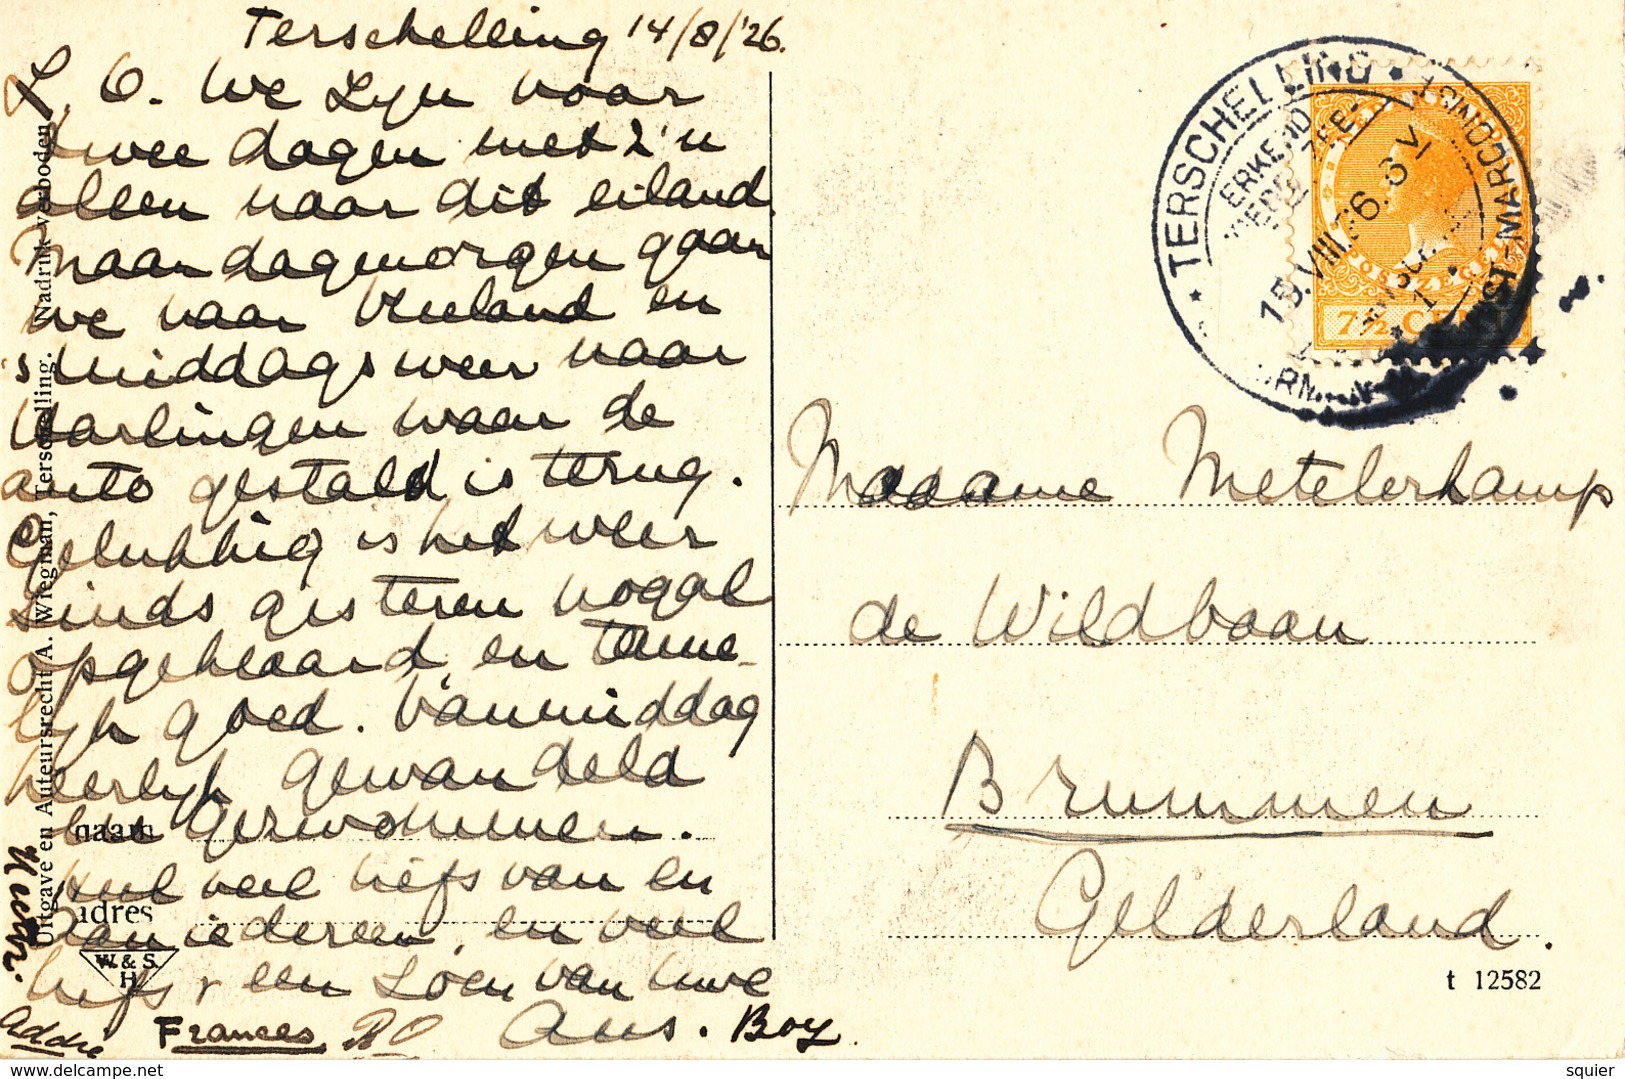 Terschelling 14/8/'26.
L. O. We zijn voor
twee dagen met z'n
allen naar dit eiland.
Maandagmorgen gaan
we naar Vlieland en
's middags weer naar
Harlingen waar de
auto gestald is terug.
Gelukkig is het weer
sinds gisteren nogal
opgeklaard en tame-
lijk goed. Vanmiddag
heerlijk gewandeld
en gezwommen.
veel liefs van en
aan iedereen, en veel
liefs + een zoen van uwe
Ans. Boy
Frances
TERSCHELLING
7½ CENT
POSTZEGEL
Madame Metelerkamp
de Wildbaan
Brummen
Gelderland.
naam
adres
W. & S.
H
t 12582
Uitgave en Auteursrecht A. Wiegman, Terschelling. Nadruk verboden
www.delcampe.net
squier